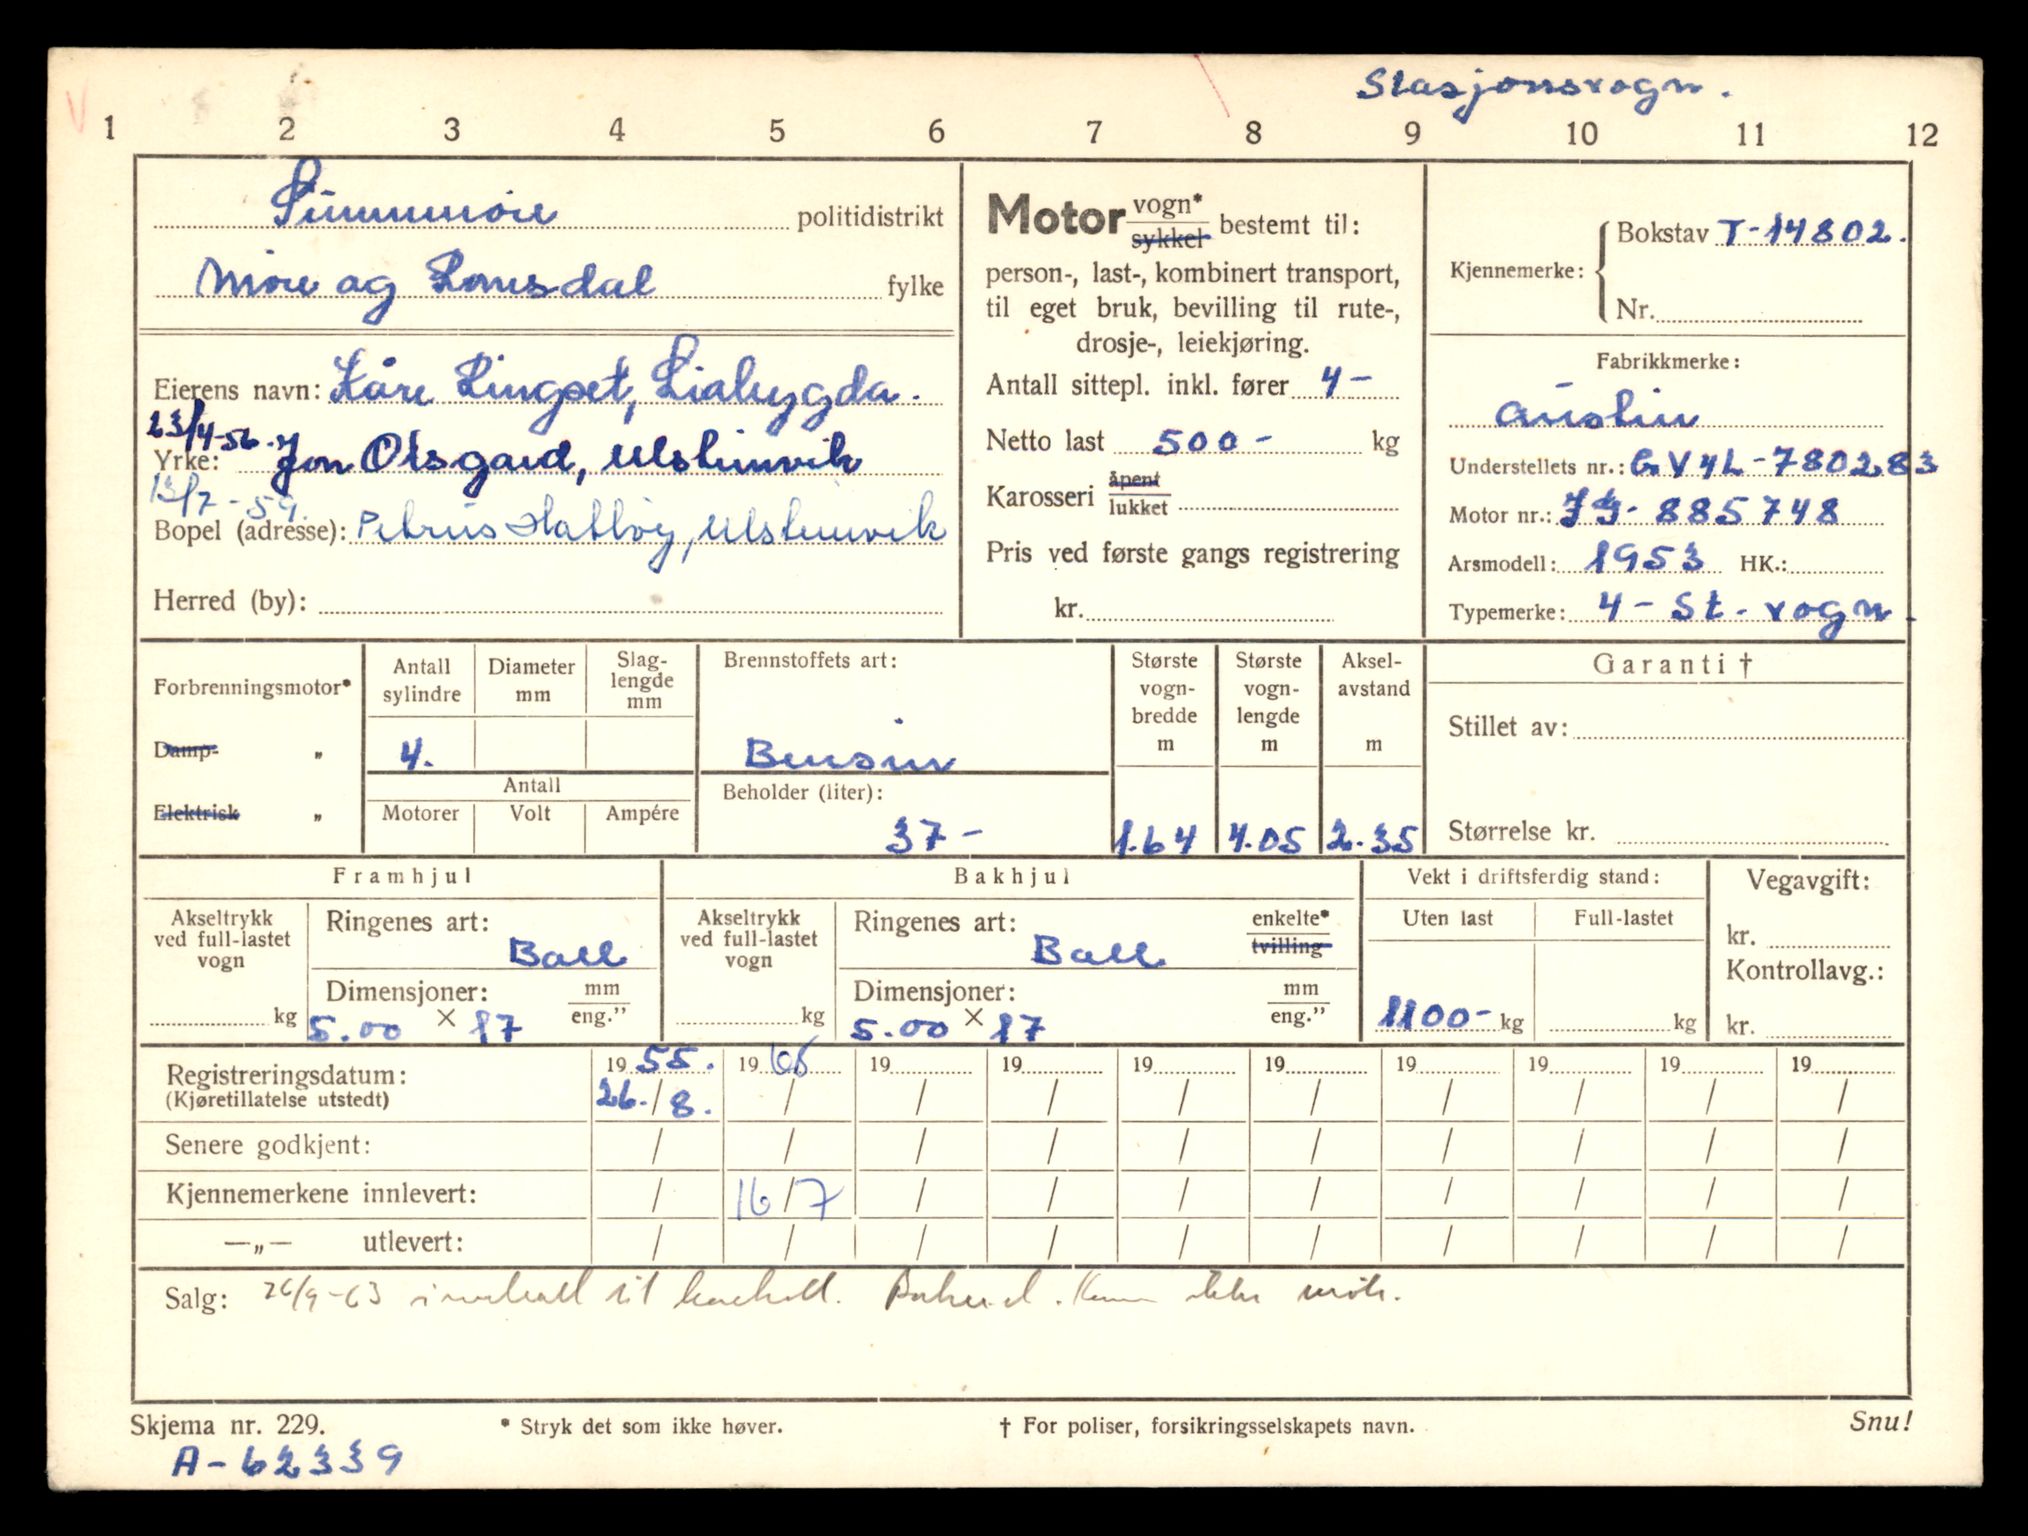 Stasjonsvogn.
1 2 3 4 5 6 7 8 9 10 11 12
Sunnmøre politidistrikt
Møre og Romsdal fylke
Eierens navn: Kåre Ringset, Liabygda.
23/4-56. Yrke: Jon Olsgard, Ulsteinvik
13/7-59.
Bopel (adresse): Petrus Hatløy, Ulsteinvik
Herred (by):
Motor vogn* sykkel bestemt til:
person-, last-, kombinert transport,
til eget bruk, bevilling til rute-,
drosje-, leiekjøring.
Antall sittepl. inkl. fører 4-
Netto last 500- kg
Karosseri åpent lukket
Pris ved første gangs registrering
kr.
Kjennemerke: Bokstav T-14802.
Nr.
Fabrikkmerke:
Austin
Understellets nr.: GV4L-780283
Motor nr.: JG-885748
Arsmodell: 1953 HK.:
Typemerke: 4-St.vogn.
Forbrenningsmotor*
Damp- "
Elektrisk "
Antall sylindre
Diameter mm
Slag-lengde mm
4.
Antall
Motorer Volt Ampére
Brennstoffets art:
Bensin
Beholder (liter):
37-
Største vogn-bredde m
1.64
Største vogn-lengde m
4.05
Aksel-avstand m
2.35
Garanti †
Stillet av:
Størrelse kr.
Framhjul
Akseltrykk ved full-lastet vogn
kg
Ringenes art:
Ball
Dimensjoner: mm eng."
5.00 × 17
Bakhjul
Akseltrykk ved full-lastet vogn
kg
Ringenes art: enkelte* tvilling
Ball
Dimensjoner: mm eng."
5.00 × 17
Vekt i driftsferdig stand:
Uten last Full-lastet
1100- kg kg
Vegavgift:
kr.
Kontrollavg.:
kr.
Registreringsdatum: 19 55. 19 65 19 19 19 19 19 19 19 19
(Kjøretillatelse utstedt) 26./8. / / / / / / / / /
Senere godkjent: / / / / / / / / / /
Kjennemerkene innlevert: / 16/7 / / / / / / / /
—„— utlevert: / / / / / / / / / /
Salg: 26/9-63 innkalt til kontroll. ikke møte.
Skjema nr. 229. * Stryk det som ikke høver. † For poliser, forsikringsselskapets navn. Snu!
A-62339